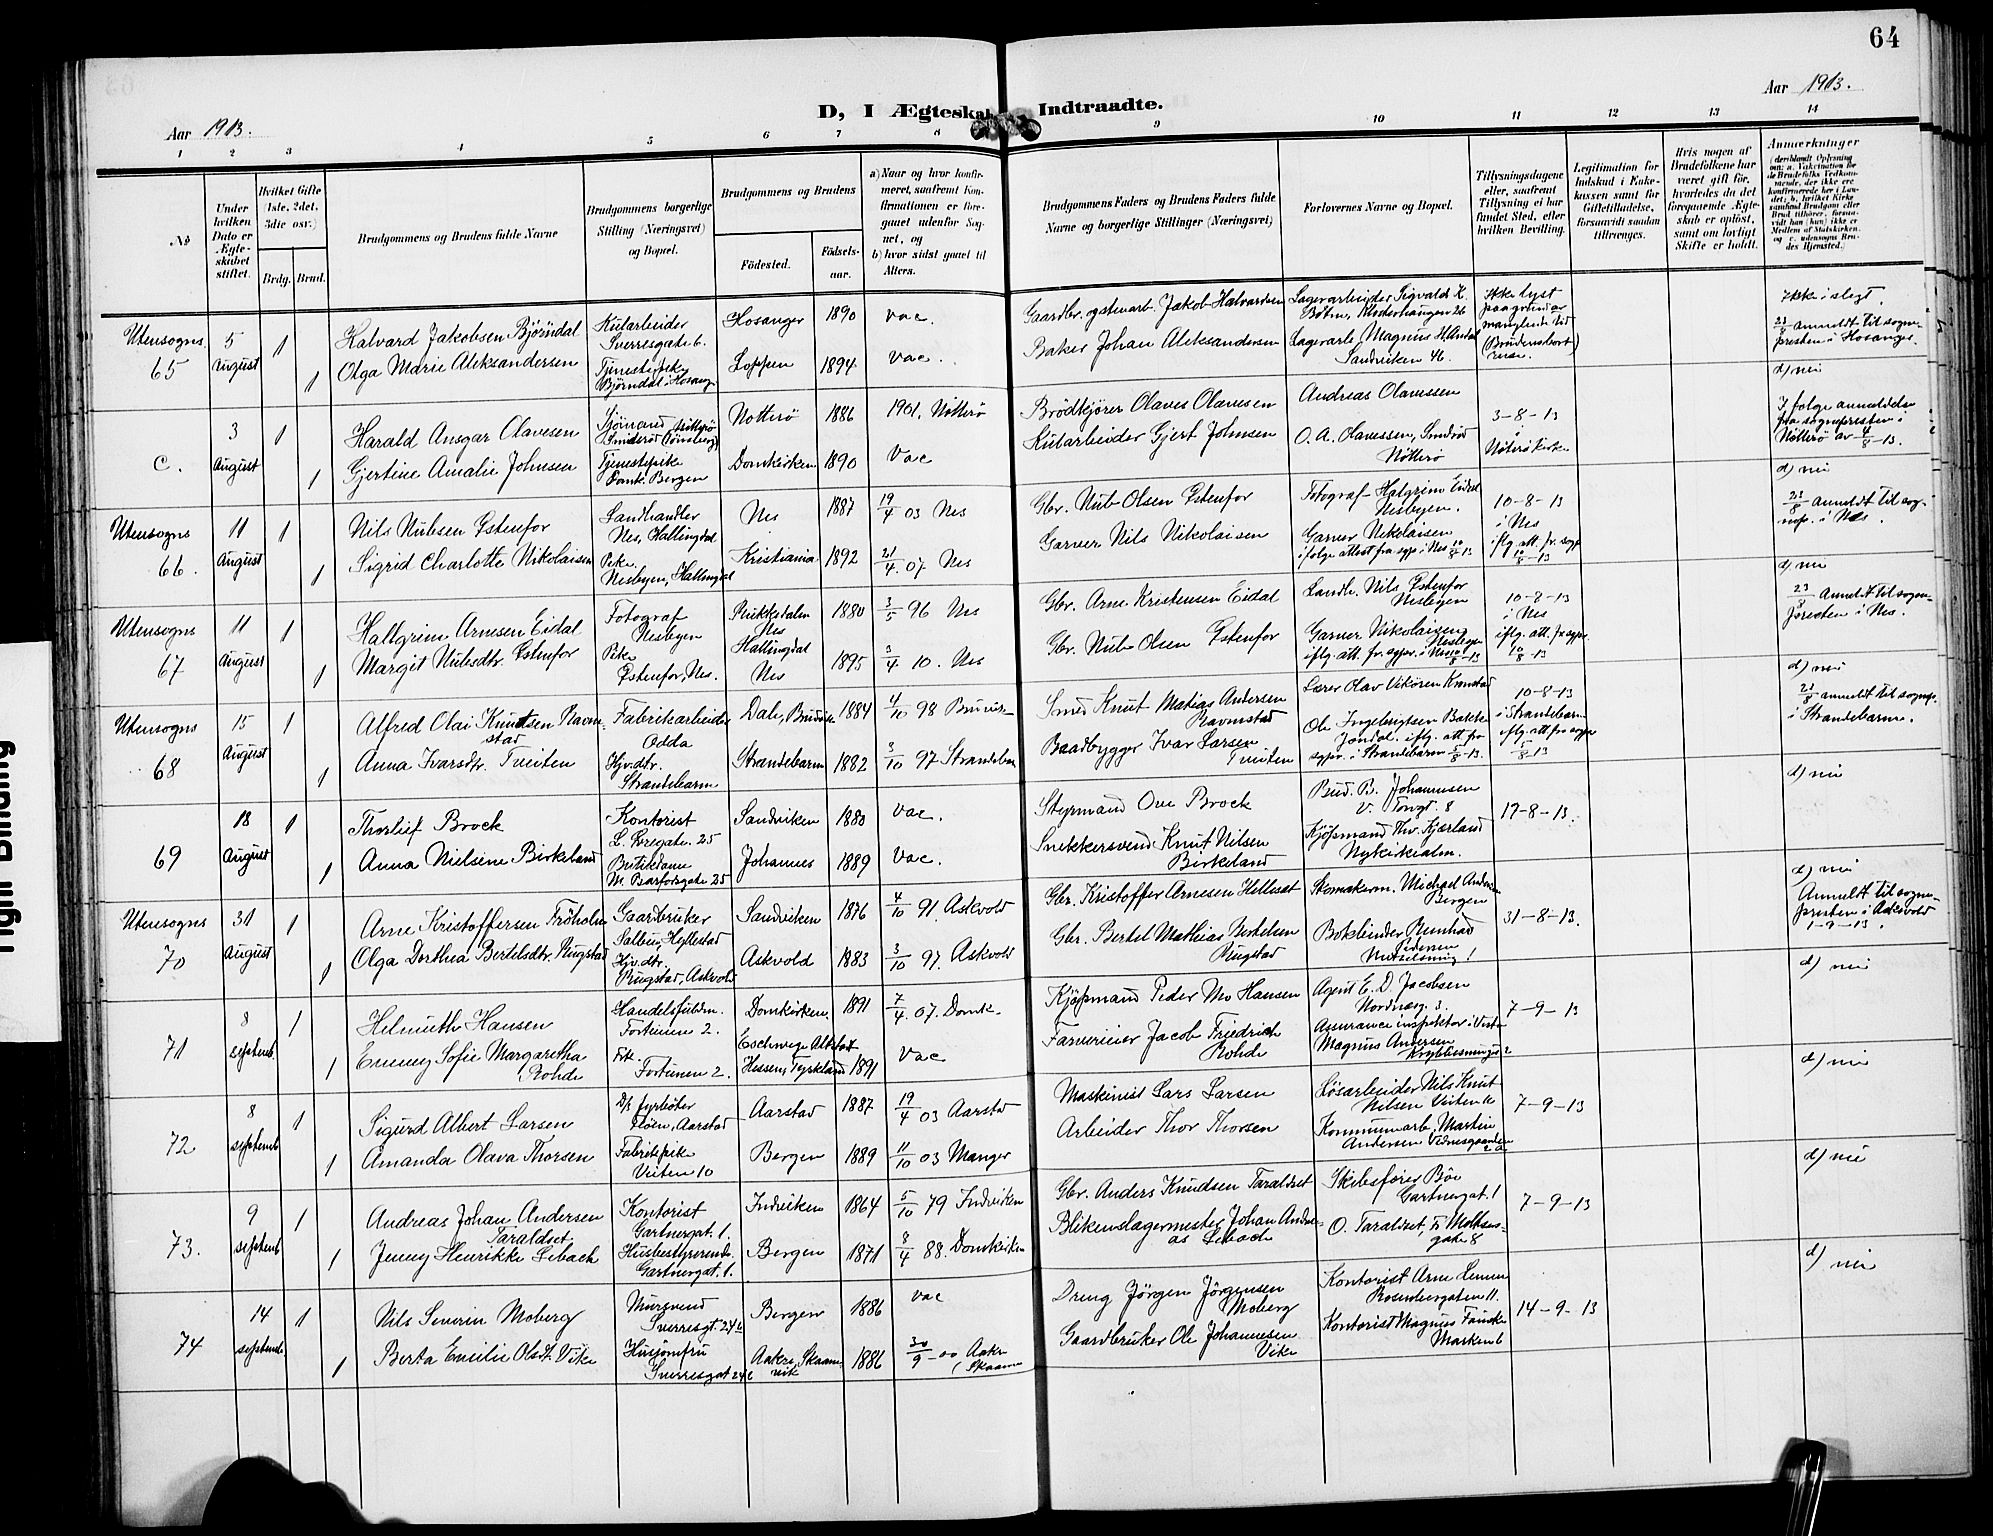 64
Aar 1913.
Aar 1913.
D, I Ægteskab Indtraadte.
1 2 3 4 5 6 7 8 9 10 11 12 13 14
No
Under hvilken Dato er Ægteskabet stiftet.
Hvilket Gifte (1ste, 2det, 3die osv.)
Brdg. Brud.
Brudgommens og Brudens fulde Navne
Brudgommens borgerlige Stilling (Næringsvei) og Bopæl.
Brudgommens og Brudens
Födested.
Födselsaar.
a) Naar og hvor konfirmeret, saafremt Konfirmationen er foregaaet udenfor Sognet, og
b) hvor sidst gaaet til Alters.
Brudgommens Faders og Brudens Faders fulde Navne og borgerlige Stillinger (Næringsvei)
Forlovernes Navne og Bopæl.
Tillysningsdagene eller, saafremt Tillysning ei har fundet Sted, efter hvilken Bevilling.
Legitimation for Indskud i Enkekassen samt for Giftetilladelse, forsaavidt saadan tiltrænges.
Hvis nogen af Brudefolkene har været gift för, hvorledes da det foregaaende Ægteskab er oplöst, samt om lovligt Skifte er holdt.
Anmerkninger
Utensogns 65
5 August
1
Halvard Jakobsen Bjørndal
Rutarbeider Sverresgate 6.
Hosanger 1890 vac.
Gaardbr. og stenarb. Jakob Halvardsen
Lagerarbeider Sigvald K. Bøtun, Klosterhaugen 26
Ikke lyst paa grund av manglende tid (Brudens bortreise)
Ikke i slegt.
23/8 anmeldt til sognepresten i Hosanger.
1
Olga Marie Aleksandersen
Tjenestepike Bjørndal i Hosang.
Loppen 1894 vac.
Baker Johan Aleksandersen
Lagerarb. Magnus H. Andal Sandviken 46.
c.
3 August
1
Harald Ansgar Olavesen
Nøtterø 1886 1901. Nötterö
Brödkjører Olaves Olavesen
Andreas Olavessen
3-8-13 i Nøtterø kirke
d) nei
I følge anmeldelse fra sognepresten i Nøtterø av 4/8-13.
1
Gjertine Amalie Johnsen
Tjenestepike Domk. Bergen
Domkirken 1890 Vac
Rutarbeider Gjert Johnsen
O. A. Olavessen, Smidsrød Nøtterø
Utensogns 66.
11 August
1
Nils Nubsen Estenfor
Landhandler Nes, Hallingdal
Nes 1887 19/4 03 Nes
Gbr. Nub Olsen Estenfor
Fotograf Halgrim Eidal Nesbyen.
10-8-13 i Nes iflg. att. fr. sogp 10/8-13
d) nei
23/8 anmeldt til sognep. i Nes.
1
Sigrid Charlotte Nikolaisen
Pike. Nesbyen, Hallingdal
Kristiania 1892 21/4. 07 Nes
Garver Nils Nikolaisen
Garver Nikolaisen ifølge attest fra sgp. i Nes 10/8-13
Utensogns 67
11 August
1
Hallgrim Arnesen Eidal
Fotograf Nesbyen
Rukkedalen Nes 1880 3/5 96 Nes
Gbr. Arne Kristensen Eidal
Landh. Nils Estenfor Nesbyen
10-8-13 i Nes iflg. att. fr. sgpr. 10/8-13
d) nei
23/8 Anmeldt til sognepresten i Nes.
1
Margit Nubsdtr. Estenfor
Pike Estenfor, Nes.
Hallingdal Nes 1895 3/4 10. Nes
Gbr. Nub Olsen Estenfor
Garver Nikolaisen, Nesbyen iflg. att. fr. sgpr. i Nes 10/8-13
Utensogns 68
15 August
1
Alfred Olai Knudtsen Ravnstad
Fabrikarbeider Odda
Dale, Bruvik 1884 4/10 98 Bruvik
Smed Knut Matias Andersen Ravnstad
Lærer Olav Vikören Kvamstad
10-8-13 i Strandebarm iflg. att. fra sogpr 5/8-13
d) nei
23/8 anmeldt til sognep. i Strandebarm.
1
Anna Ivarsdtr. Tveiten
Hjv. dtr. Strandebarm
Strandebarm 1882 3/10 97 Strandebar
Baadbygger Ivar Larsen Tveiten
Ole Ingebrigtsen Bakke Jondal. iflg. att fra sgpr. i Strandebarm 5/8-13.
69
18 August
1
Thorleif Brock
Kontorist L. Øvregate. 25
Sandviken 1880 vac.
Styrmand Ove Brock
Bud. B. Johannesen V. Torvgt. 8
17-8-13.
d) nei
1
Anna Nielsine Birkeland
Butikdame M. Barfodsgate 25
Johannes 1889 Vac.
Snekkersvend Knut Nilsen Birkeland
Kjøpmand Thv. Kjærland Nykirkealm.
Utensogns 70
31 August
1
Arne Kristoffersen Fröholm
Gaardbruker Salbu, Hyllestad
Sandviken 1876 4/10 91. Askvold
Gbr. Kristoffer Arnesen Hellesæt
Skomakerm. Michael Andersen Bergen
31-8-13.
d) nei
Anmeldt til sognepresten i Askvold 1-9-13.
1
Olga Dorthea Bertelsdtr. Rugstad
Hjv. dtr. Rugstad, Askvold
Askvold 1883 3/10 97. Askvold
Gbr. Bertel Mathias Bertelsen Rugstad
Bokbinder Reinhard Pedersen
71
8 septemb
1
Helmuth Hansen
Handelsfuldm. Fortunen 2.
Domkirken. 1891 7/4. 07. Domk.
Kjøpmand Peder Mo Hansen
Agent E. D. Jacobsen Nordnesg. 3.
7-9-13
d) nei
1
Emmy Sofie Margaretha Rohde
Frk. Fortunen 2.
Eschwege Altstadt Hessen, Tyskland 1891 Vac
Farverieier Jacob Friedrich Rohde
Assuranceinspektør Magnus Andersen
72
8 septemb
1
Sigurd Albert Larsen
D/s fyrbøter Fløen, Aarstad
Aarstad 1887 19/4 03 Aarstad
Maskinist Lars Larsen
Løsarbeider Nils Knut Nilsen Veiten 10
7-9-13
d) nei
1
Amanda Olava Thorsen
Fabrikpike Veiten 10
Bergen 1889 11/10 03 Manger
Arbeider Thor Thorsen
Kommunearb. Martin Andersen
73.
9 septemb
1
Andreas Johan Andersen Taraldset
Kontorist Gartnergat. 1.
Indviken 1864 5/10 79 Indviken
Gbr. Anders Knudsen Taraldset
Skibsfører Böe Gartnergat. 1
7-9-13
d) nei
1
Jenny Henrikke Sebach
Husbestyrerinde. Gartnergat. 1.
Bergen 1871 8/4 88. Domkirken
Blikenslagermester Johan Andreas Sebach
O. Taraldset, Fr. Meltzersgate 8
74
14 septemb.
1
Nils Severin Moberg
Mursvend Sverresgt. 24 b
Bergen 1886 vac
Dreng Jörgen Jörgensen Moberg
Kontorist Arne Lemm Rosenbergaten 11.
14-9-13
d) nei
1
Berta Emilie Olsdt. Vike
Husjomfru Sverresgat 24 b
Aakre, Skaanevik 1886 30/9-00 Aakre (Skaane
Gaardbruker Ole Johannesen Vike
Kontorist Magnus Fauske Marken 6